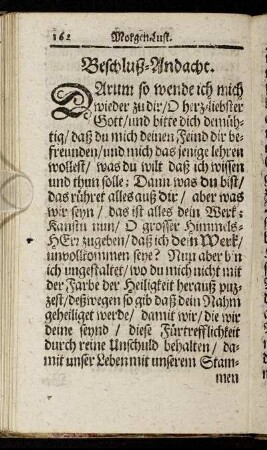 162 Morgen-Lust.
Beschluß-Andacht.
DArum so wende ich mich
wieder zu dir/ O hertz-liebster
Gott/ und bitte dich demüh-
tig/ daß du mich deinen Feind dir be-
freunden/ und mich das jenige lehren
wollest/ was du wilt daß ich wissen
und thun solle: Dann was du bist/
das rühret alles auß dir/ aber was
wir seyn/ das ist alles dein Werk:
Kanstu nun/ O grosser Himmels-
HErr zugeben/ daß ich dein Werk/
unvollkommen seye? Nun aber bin
ich ungestaltet/ wo du mich nicht mit
der Farbe der Heiligkeit herauß puz-
zest/ deßwegen so gib daß dein Nahm
geheiliget werde/ damit wir/ die wir
deine seynd/ diese Fürtrefflichkeit
durch reine Unschuld behalten/ da-
mit unser Leben mit unserem Stam-
men